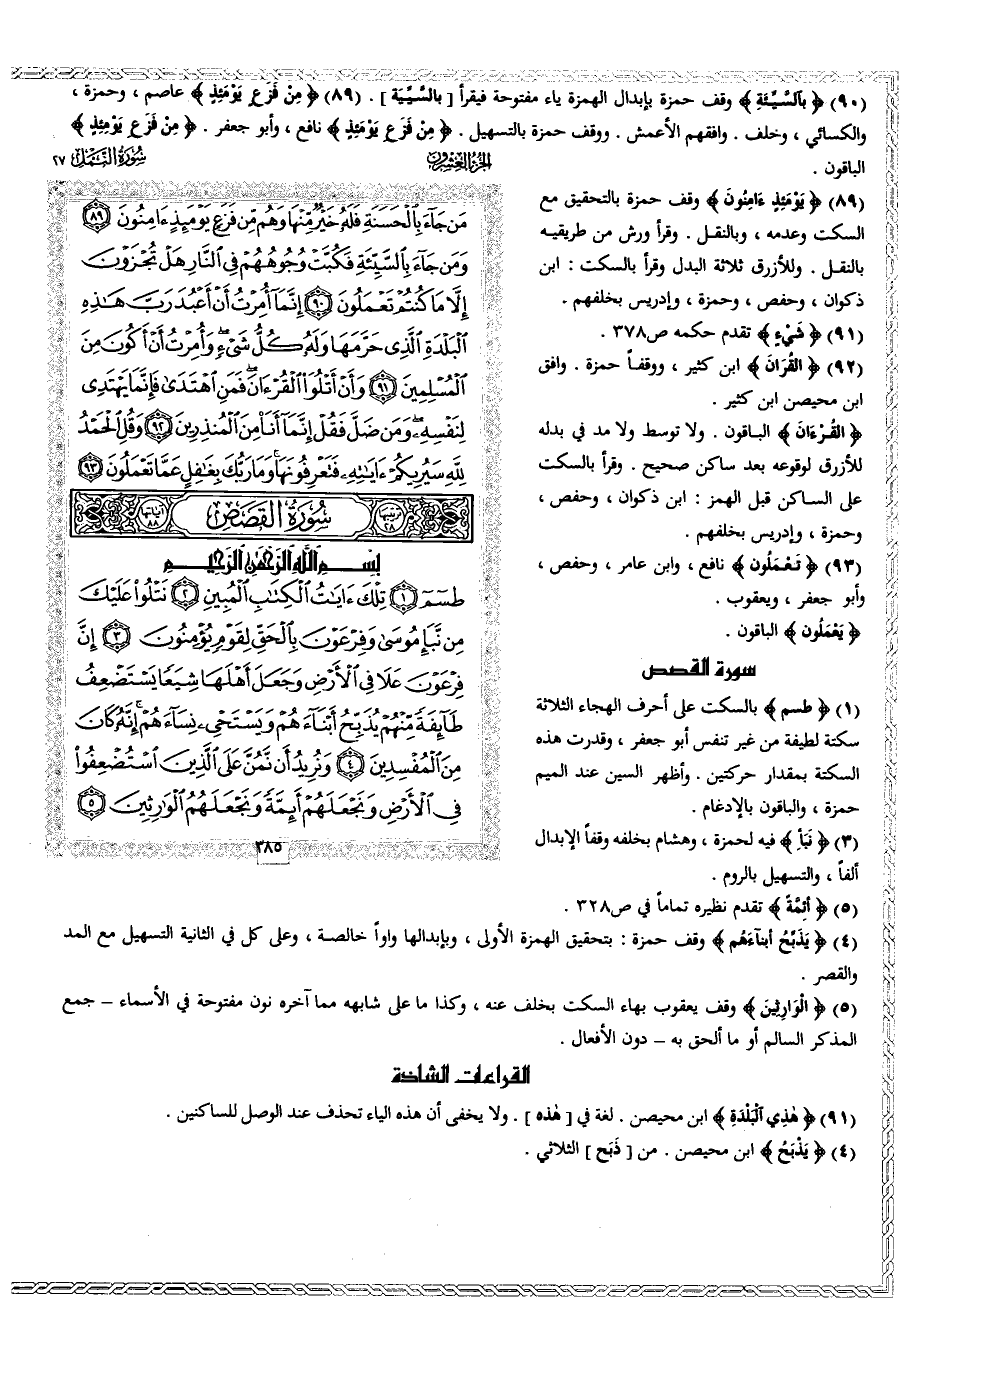 (٩٠) ﴿ بالسَّيِّئَةِ ﴾ وقف حمزة بإبدال الهمزة ياء مفتوحة فيقرأ [ بالسَّيِّيَة ] . (٨٩) ﴿ مِنْ فَزَعٍ يَوْمَئِذٍ ﴾ عاصم ، وحمزة ،
والكسائي ، وخلف . وافقهم الأعمش . ووقف حمزة بالتسهيل . ﴿ مِنْ فَزَعِ يَوْمَئِذٍ ﴾ نافع ، وأبو جعفر . ﴿ مِنْ فَزَعِ يَوْمِئِذٍ ﴾
الباقون .
الجزء العشرون
سورة النمل ٢٧
(٨٩) ﴿ يَوْمَئِذٍ ءَامِنُونَ ﴾ وقف حمزة بالتحقيق مع
السكت وعدمه ، وبالنقل . وقرأ ورش من طريقيه
بالنقل . وللأزرق ثلاثة البدل وقرأ بالسكت : ابن
ذكوان ، وحفص ، وحمزة ، وإدريس بخلفهم .
(٩١) ﴿ شَيْءٍ ﴾ تقدم حكمه ص٣٧٨ .
(٩٢) ﴿ القُرَانَ ﴾ ابن كثير ، ووقفاً حمزة . وافق
ابن محيصن ابن كثير .
﴿ القُرْءَانَ ﴾ الباقون . ولا توسط ولا مد في بدله
للأزرق لوقوعه بعد ساكن صحيح . وقرأ بالسكت
على الساكن قبل الهمز : ابن ذكوان ، وحفص ،
وحمزة ، وإدريس بخلفهم .
(٩٣) ﴿ تَعْمَلُون ﴾ نافع ، وابن عامر ، وحفص ،
وأبو جعفر ، ويعقوب .
﴿ يَعْمَلُون ﴾ الباقون .
سورة القصص
(١) ﴿ طسم ﴾ بالسكت على أحرف الهجاء الثلاثة
سكتة لطيفة من غير تنفس أبو جعفر ، وقدرت هذه
السكتة بمقدار حركتين . وأظهر السين عند الميم
حمزة ، والباقون بالإدغام .
(٣) ﴿ نَبَأِ ﴾ فيه لحمزة ، وهشام بخلفه وقفاً الإبدال
ألفاً ، والتسهيل بالروم .
(٥) ﴿ أئِمَّةً ﴾ تقدم نظيره تماماً في ص٣٢٨ .
مَن جَآءَ بِٱلْحَسَنَةِ فَلَهُۥ خَيْرٌ مِّنْهَا وَهُم مِّن فَزَعٍ يَوْمَئِذٍ ءَامِنُونَ ٨٩
وَمَن جَآءَ بِٱلسَّيِّئَةِ فَكُبَّتْ وُجُوهُهُمْ فِى ٱلنَّارِ هَلْ تُجْزَوْنَ
إِلَّا مَا كُنتُمْ تَعْمَلُونَ ٩٠ إِنَّمَآ أُمِرْتُ أَنْ أَعْبُدَ رَبَّ هَـٰذِهِ
ٱلْبَلْدَةِ ٱلَّذِى حَرَّمَهَا وَلَهُۥ كُلُّ شَىْءٍ ۖ وَأُمِرْتُ أَنْ أَكُونَ مِنَ
ٱلْمُسْلِمِينَ ٩١ وَأَنْ أَتْلُوَا۟ ٱلْقُرْءَانَ ۖ فَمَنِ ٱهْتَدَىٰ فَإِنَّمَا يَهْتَدِى
لِنَفْسِهِۦ ۖ وَمَن ضَلَّ فَقُلْ إِنَّمَآ أَنَا۠ مِنَ ٱلْمُنذِرِينَ ٩٢ وَقُلِ ٱلْحَمْدُ
لِلَّهِ سَيُرِيكُمْ ءَايَـٰتِهِۦ فَتَعْرِفُونَهَا ۚ وَمَا رَبُّكَ بِغَـٰفِلٍ عَمَّا تَعْمَلُونَ ٩٣
ترتيبها ٢٨ سورة القصص آياتها ٨٨
بِسْمِ ٱللَّهِ ٱلرَّحْمَـٰنِ ٱلرَّحِيمِ
طسٓمٓ ١ تِلْكَ ءَايَـٰتُ ٱلْكِتَـٰبِ ٱلْمُبِينِ ٢ نَتْلُوا۟ عَلَيْكَ
مِن نَّبَإِ مُوسَىٰ وَفِرْعَوْنَ بِٱلْحَقِّ لِقَوْمٍ يُؤْمِنُونَ ٣ إِنَّ
فِرْعَوْنَ عَلَا فِى ٱلْأَرْضِ وَجَعَلَ أَهْلَهَا شِيَعًا يَسْتَضْعِفُ
طَآئِفَةً مِّنْهُمْ يُذَبِّحُ أَبْنَآءَهُمْ وَيَسْتَحْىِۦ نِسَآءَهُمْ ۚ إِنَّهُۥ كَانَ
مِنَ ٱلْمُفْسِدِينَ ٤ وَنُرِيدُ أَن نَّمُنَّ عَلَى ٱلَّذِينَ ٱسْتُضْعِفُوا۟
فِى ٱلْأَرْضِ وَنَجْعَلَهُمْ أَئِمَّةً وَنَجْعَلَهُمُ ٱلْوَٰرِثِينَ ٥
٣٨٥
(٤) ﴿ يُذَبِّحُ أبنآءَهُم ﴾ وقف حمزة : بتحقيق الهمزة الأولى ، وبإبدالها واواً خالصة ، وعلى كل في الثانية التسهيل مع المد
والقصر .
(٥) ﴿ الْوَارِثِينَ ﴾ وقف يعقوب بهاء السكت بخلف عنه ، وكذا ما على شابهه مما آخره نون مفتوحة في الأسماء – جمع
المذكر السالم أو ما ألحق به – دون الأفعال .
القراءات الشاذة
(٩١) ﴿ هٰذِي الْبَلْدَةِ ﴾ ابن محيصن . لغة في [ هٰذه ] . ولا يخفى أن هذه الياء تحذف عند الوصل للساكنين .
(٤) ﴿ يَذْبَحُ ﴾ ابن محيصن . من [ ذَبَح ] الثلاثي .